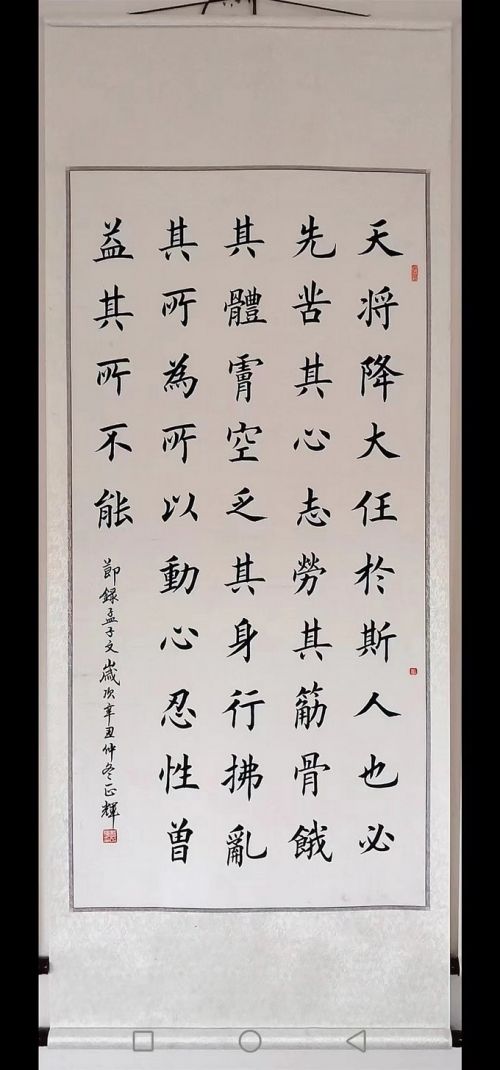 天将降大任於斯人也必
先苦其心志勞其筋骨餓
其體膚空乏其身行拂亂
其所為所以動心忍性曾
益其所不能
節録孟子文歲次辛丑仲冬正輝